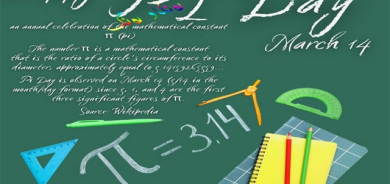 Day
March 14
an annual celebration of the mathematical constant
π (pi)
The number π is a mathematical constant
that is the ratio of a circle's circumference to its
diameter, approximately equal to
Pi Day is observed on March 14 (3/14 in the
month/day format) since 3, 1, and 4 are the first
three significant figures of π.
Source: Wikipedia
π=3,14